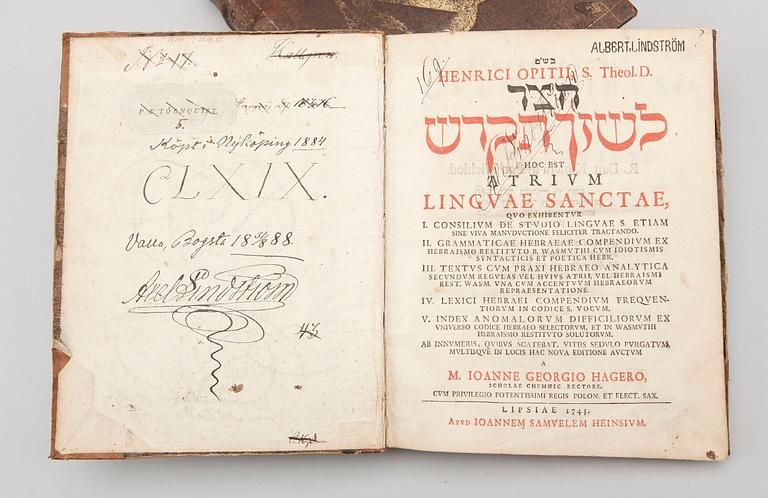 No 17.
P. P. TÖRNQUIST
5.
Köpt i Nyköping 1884
CLXIX.
Valla, Bogsta 18 5/8 88.
Axel Lindström
ALBERT LINDSTRÖM
169.
בש״ם
HENRICI OPITII, S. Theol. D.
חצר
לשון הקדש
HOC EST
ATRIVM
LINGVAE SANCTAE,
QVO EXHIBENTVR
I. CONSILIVM DE STVDIO LINGVAE S. ETIAM
SINE VIVA MANVDVCTIONE FELICITER TRACTANDO.
II. GRAMMATICAE HEBRAEAE COMPENDIVM EX
HEBRAISMO RESTITVTO B. WASMVTHI CVM IDIOTISMIS
SYNTACTICIS ET POETICA HEBR.
III. TEXTVS CVM PRAXI HEBRAEO ANALYTICA
SECVNDVM REGVLAS VEL HVIVS ATRII, VEL HEBRAISMI
REST. WASM. VNA CVM ACCENTVVM HEBRAEORVM
REPRAESENTATIONE.
IV. LEXICI HEBRAEI COMPENDIVM FREQVEN-
TIORVM IN CODICE S. VOCVM.
V. INDEX ANOMALORVM DIFFICILIORVM EX
VNIVERSO CODICE HEBRAEO SELECTORVM, ET IN WASMVTHI
HEBRAISMO RESTITVTO SOLVTORVM.
AB INNVMERIS, QVIBVS SCATEBAT, VITIIS SEDVLO PVRGATVM,
MVLTISQVE IN LOCIS HAC NOVA EDITIONE AVCTVM
A
M. IOANNE GEORGIO HAGERO,
SCHOLAE CHEMNIC. RECTORE.
CVM PRIVILEGIO POTENTISSIMI REGIS POLON. ET ELECT. SAX.
LIPSIAE 1745.
APVD IOANNEM SAMVELEM HEINSIVM.